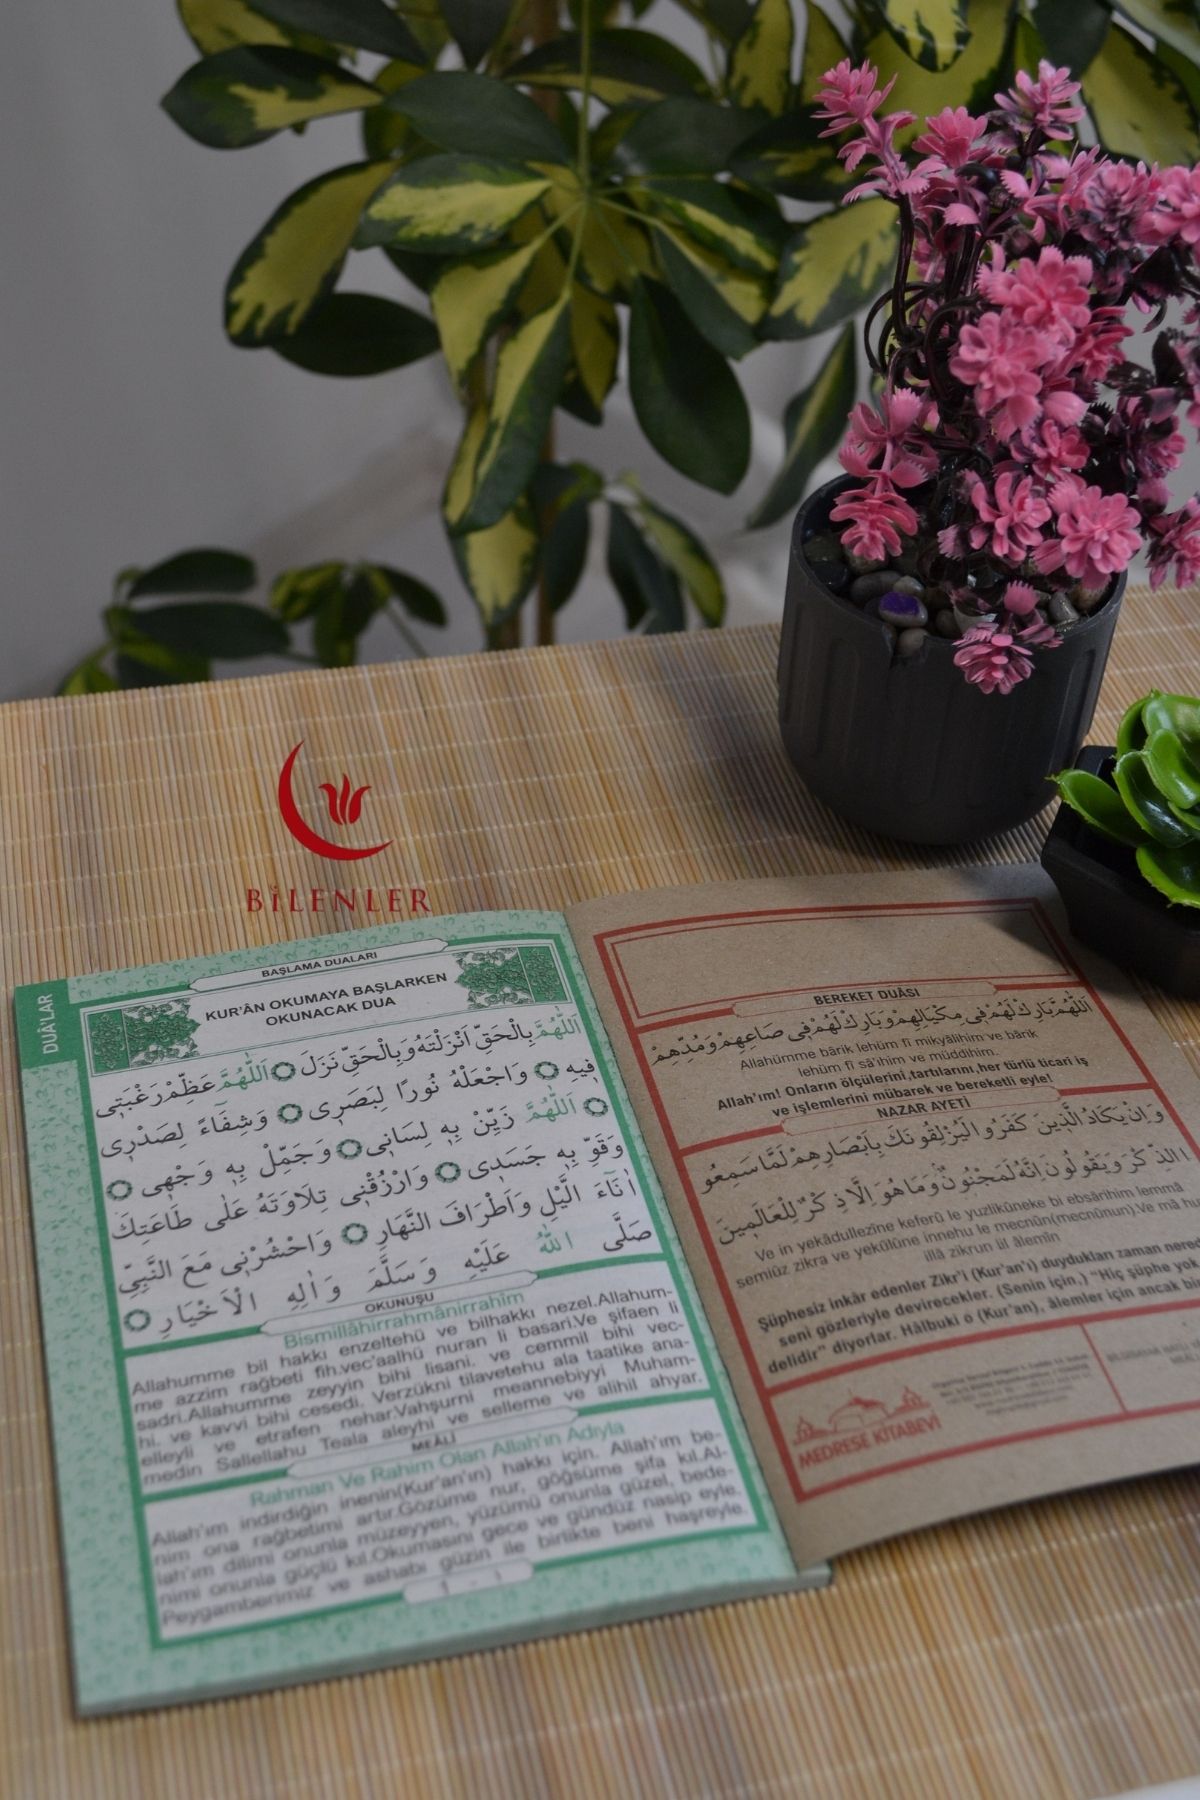 BİLENLER
DUÂLAR
BAŞLAMA DUALARI
KUR'ÂN OKUMAYA BAŞLARKEN
OKUNACAK DUA
اَللّٰهُمَّ بِالْحَقِّ اَنْزَلْتَهُ وَبِالْحَقِّ نَزَلَ اَللّٰهُمَّ عَظِّمْ رَغْبَتِى
فِيهِ وَاجْعَلْهُ نُورًا لِبَصَرِى وَشِفَاءً لِصَدْرِى
اَللّٰهُمَّ زَيِّنْ بِهِ لِسَانِى وَجَمِّلْ بِهِ وَجْهِى
وَقَوِّ بِهِ جَسَدِى وَارْزُقْنِى تِلَاوَتَهُ عَلٰى طَاعَتِكَ
اٰنَاءَ الَّيْلِ وَاَطْرَافَ النَّهَارِ وَاحْشُرْنِى مَعَ النَّبِيِّ
صَلَّى اللّٰهُ عَلَيْهِ وَسَلَّمَ وَاٰلِهِ الْاَخْيَارِ
OKUNUŞU
Bismillâhirrahmânirrahîm
Allahumme bil hakkı enzeltehü ve bilhakkı nezel.Allahum-
me azzim rağbeti fih.vec'aalhü nuran li basari.Ve şifaen li
sadri.Allahumme zeyyin bihi lisani. ve cemmil bihi vec-
hi. ve kavvi bihi cesedi. Verzükni tilavetehu ala taatike ana-
elleyli ve etrafen nehar.Vahşurni meannebiyyi Muham-
medin Sallellahu Teala aleyhi ve selleme ve alihil ahyar.
MEÂLİ
Rahman Ve Rahim Olan Allah'ın Adıyla
Allah'ım indirdiğin inenin(Kur'an'ın) hakkı için. Allah'ım be-
nim ona rağbetimi artır.Gözüme nur, göğsüme şifa kıl.Al-
lah'ım dilimi onunla müzeyyen, yüzümü onunla güzel, bede-
nimi onunla güçlü kıl.Okumasını gece ve gündüz nasip eyle.
Peygamberimiz ve ashabı güzin ile birlikte beni haşreyle.
BEREKET DUÂSI
اَللّٰهُمَّ بَارِكْ لَهُمْ فِى مِكْيَالِهِمْ وَبَارِكْ لَهُمْ فِى صَاعِهِمْ وَمُدِّهِمْ
Allahümme bârik lehüm fî mikyâlihim ve bârik
lehüm fî sâ'ihim ve müddihim.
Allah'ım! Onların ölçülerini,tartılarını,her türlü ticari iş
ve işlemlerini mübarek ve bereketli eyle!
NAZAR AYETİ
وَاِنْ يَكَادُ الَّذِينَ كَفَرُوا لَيُزْلِقُونَكَ بِاَبْصَارِهِمْ لَمَّا سَمِعُوا
الذِّكْرَ وَيَقُولُونَ اِنَّهُ لَمَجْنُونٌ وَمَا هُوَ اِلَّا ذِكْرٌ لِلْعَالَمِينَ
Ve in yekâdullezîne keferû le yuzlikûneke bi ebsârihim lemmâ
semiûz zikra ve yekûlûne innehu le mecnûn(mecnûnun).Ve mâ hu
illâ zikrun lil âlemîn
Şüphesiz inkâr edenler Zikr'i (Kur'an'ı) duydukları zaman nered
seni gözleriyle devirecekler. (Senin için,) "Hiç şüphe yok
delidir" diyorlar. Hâlbuki o (Kur'an), âlemler için ancak bir
MEDRESE KİTABEVİ